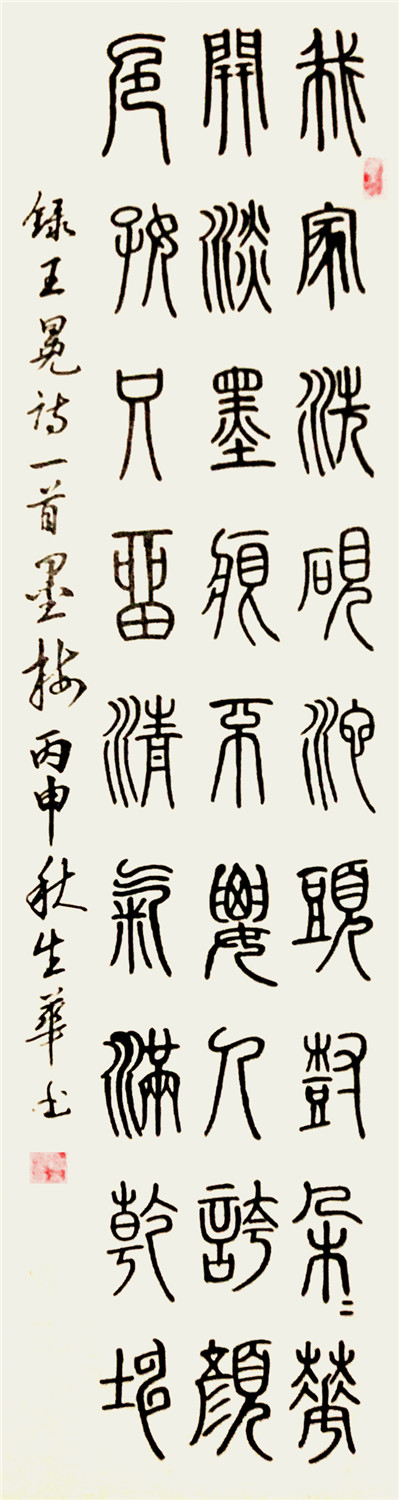 我家洗硯池頭樹朵〻華
開淡墨痕不要人誇顏
色好只留清氣滿乾坤
録王冕诗一首墨梅丙申秋生華书